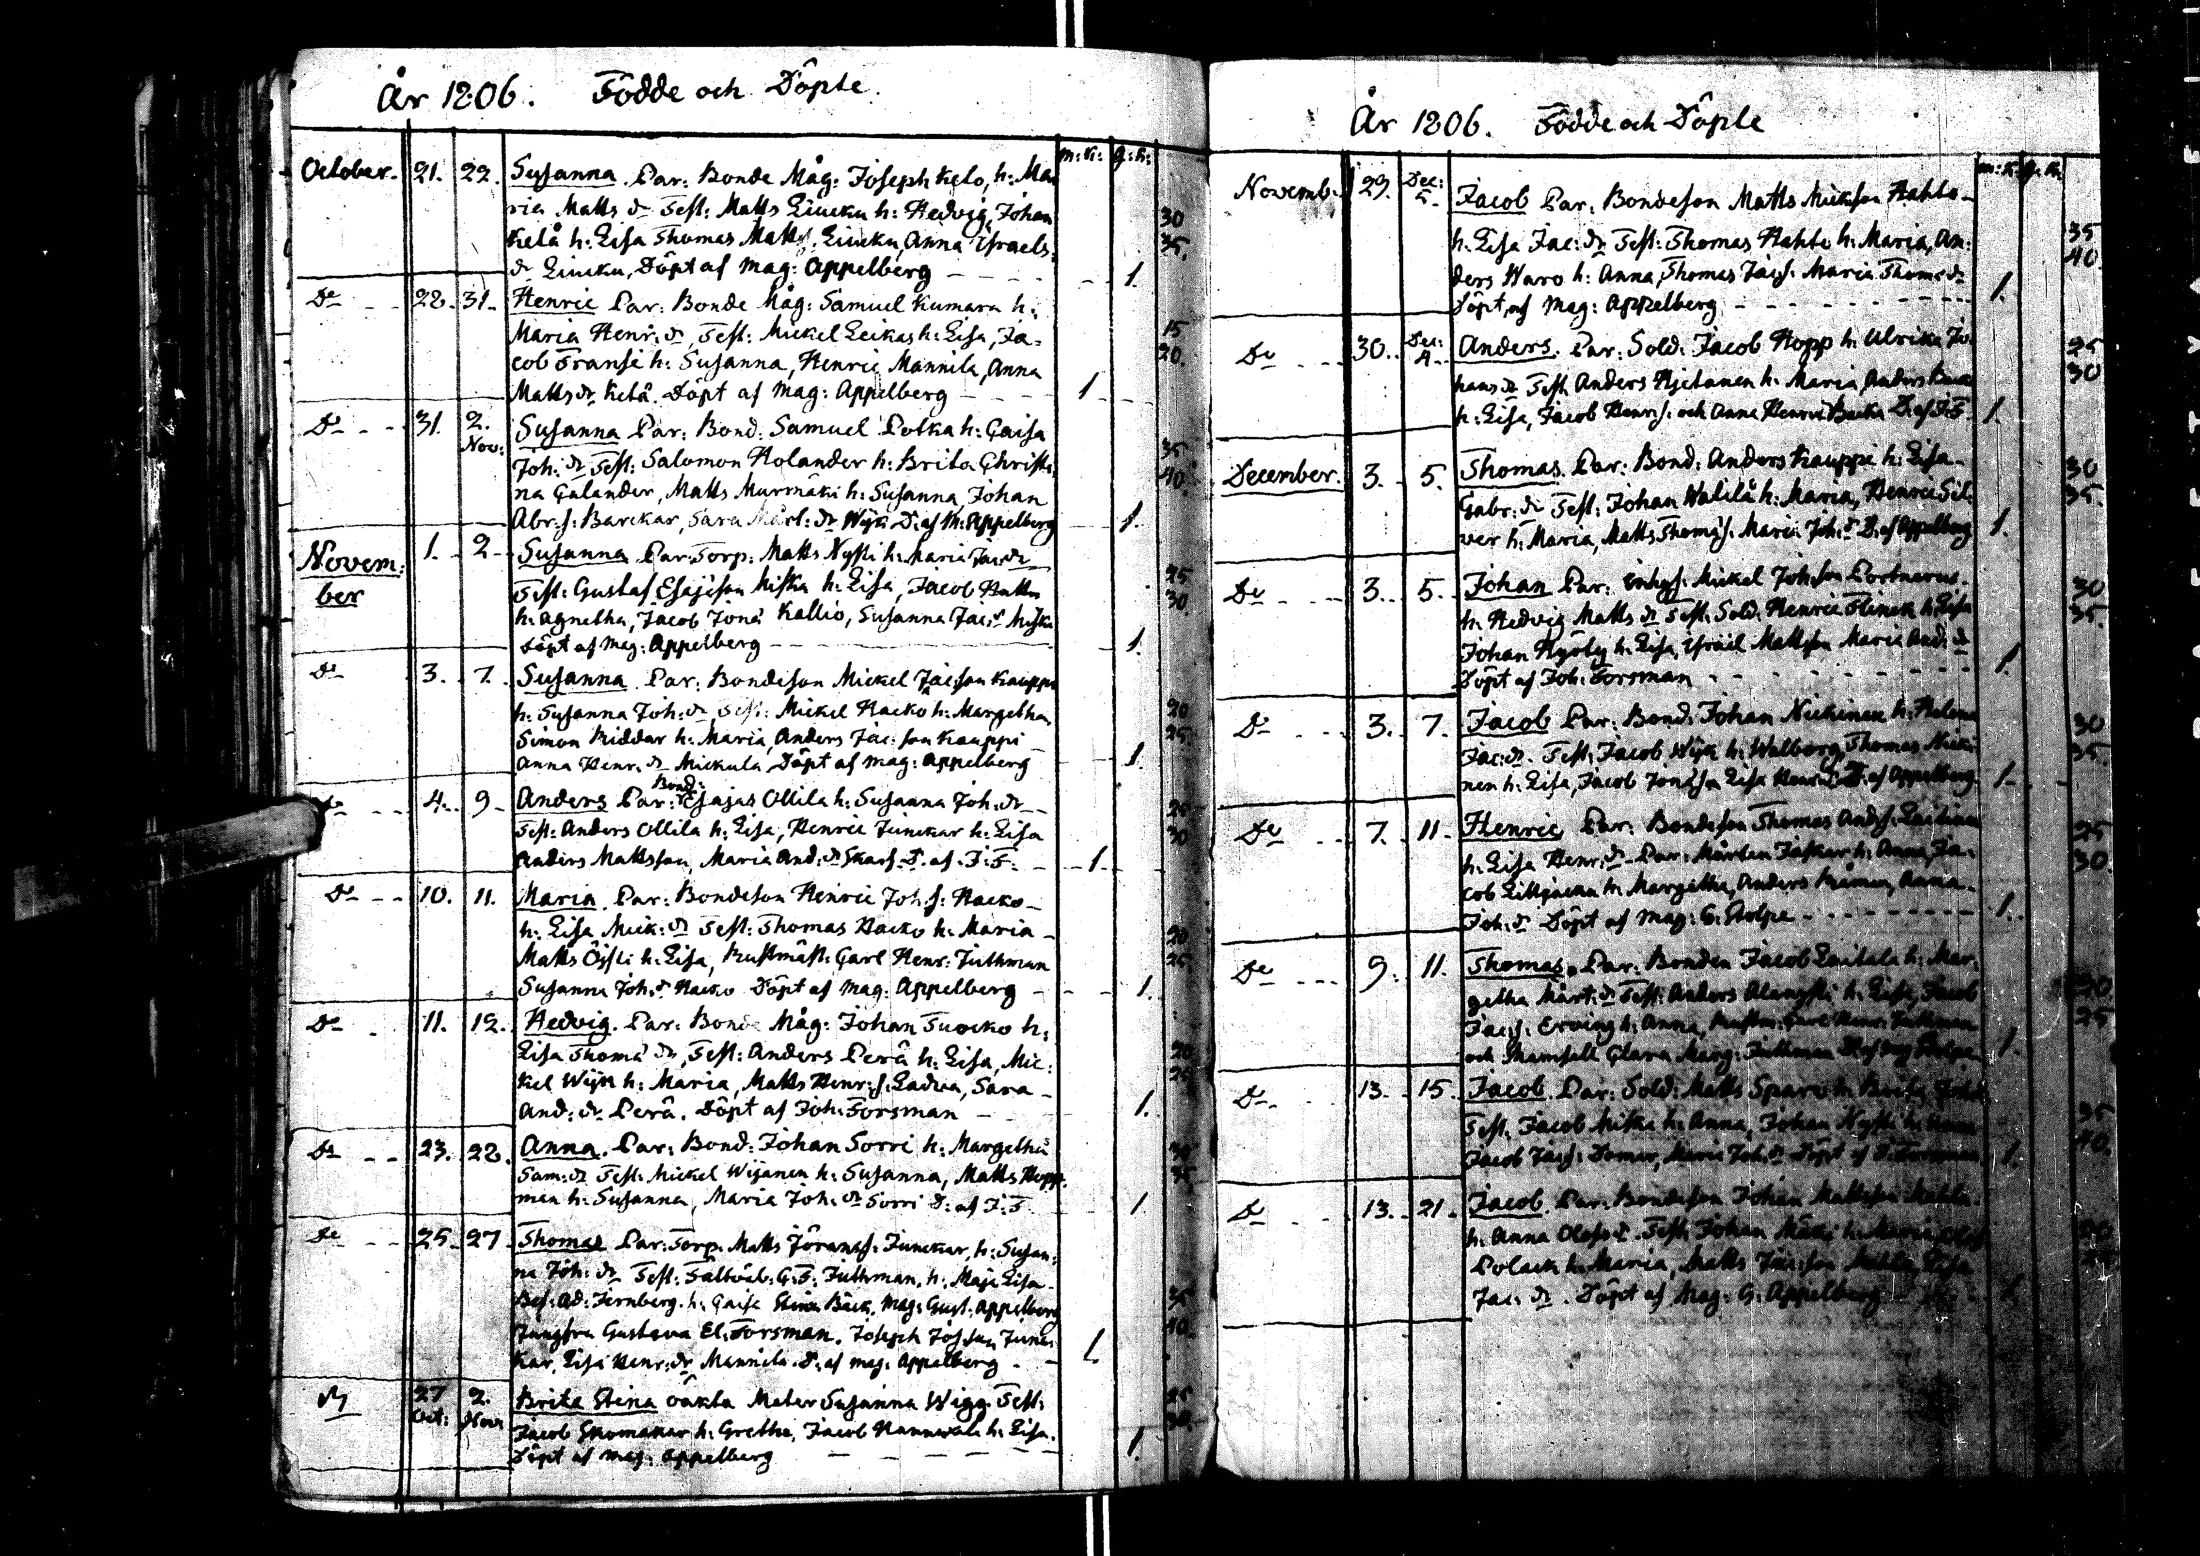 År 1806. Födde och Döpte.
m:k: q:k:
October. 21. 22. Susanna. Par: Bonde Måg: Joseph Kelo, h: Ma
ria Matts dr Test: Matts Liucku h: Hedvig, Johan 30
Kelå h: Lisa Thomas Matts. Liucku, Anna Israels 35.
dr Liucku, Döpt af Mag: Appelberg 1.
Do 28. 31. Henric Par: Bonde Måg: Samuel Kumara h:
Maria Henr: dr, Test: Mickel Leikas h: Lisa, Ja- 15
cob Transi h: Susanna, Henric Mannila, Anna 20.
Matts dr Kelå. Döpt af Mag: Appelberg 1
Do 31. 2. Nov: Susanna Par: Bond: Samuel Polka h: Caisa
Joh: dr Test: Salomon Holander h: Brita Christi 35
na Calander, Matts Murmäki h: Susanna, Johan 40.
Abr: s: Barckar, Sara Mårt: dr Wijk D: af M: Appelberg 1.
Novem: 1. 2. Susanna Par: Torp: Matts Nysti h: Maria Jac: dr
ber Test: Gustaf Esajeson Miska h: Lisa, Jacob 25
h: Agnetha, Jacob Jona Kallio, Susanna Jac: dr Miska 30.
Döpt af Mag: Appelberg 1.
Do 3. 7. Susanna Par: Bondeson Mickel Jacson Kauppi
h: Susanna Joh: dr, Test: Mickel Hacko h: Margetha, 20
Simon Riddar h: Maria, Anders Jac: son Kauppi 25
Anna Henr: dr Mickula Döpt af Mag: Appelberg 1.
Bond:
Do 4. 9 Anders Par: Esajas Ollila h: Susanna Joh: dr 25
Test: Anders Ollila h: Lisa, Henric Junckar h: Lisa 30
Anders Mattsson, Maria And: dr Skarf. D. af. J: F: 1.
Do 10. 11. Maria. Par: Bondeson Henric Joh: s: Hacko
h: Lisa Mick: dr Test: Thomas Hacko h: Maria 20
Matts Öisti h: Lisa, Rustmäst: Carl Henr: Juthman 25
Susanna Joh: dr Hacko Döpt af Mag: Appelberg 1.
Do 11. 12. Hedvig. Par: Bonde Måg: Johan Tuocko h:
Lisa Thoma dr, Test: Anders Perå h: Lisa, Mic- 20
kel Wijk h: Maria, Matts Henr: s: Ladva, Sara 25
And: dr Perå. Döpt af Joh: Forsman 1.
Do 23. 28. Anna. Par: Bond: Johan Sorri h: Margetha 30
Sam: dr Test: Mickel Wijanen h: Susanna, Matts Hopp 35
men h: Susanna, Maria Joh: dr Sorri D: af J: F. 1.
Do 25. 27. Thomas Par: Torp. Matts Jöranss. Junckar, h: Susan-
na Joh: dr Test: Fältväb. G: F. Juthman, h: Maja Lisa
Bef: Ad: Jernberg. h: Caisa Stina Bäck. Mag: Gust. Appelberg 35
Jungfru Gustava El: Forsman. Joseph Josson Junc- 40.
kar, Lisa Henr: dr Mannila. D. af Mag: Appelberg 1.
27 Oct: 2. Nov: Brita Stina oäkta Moder Susanna Wigg. Test: 25
Jacob Skomakar h: Grethe, Jacob Nannwola h: Lisa. 30.
Döpt af Mag: Appelberg 1.
År 1806. Födde och Döpte
m:k: q:k:
Novemb. 29. Dec: 5. Jacob Par: Bondeson Matts Mickson Hahto
h: Lisa Jac: dr Test: Thomas Hahto h: Maria, An: 35
ders Waro h: Anna, Thomas Jacs: Maria Thom: dr 40
Döpt af Mag: Appelberg 1.
Do 30. Dec: 4. Anders. Par: Sold: Jacob Hopp h: Ulrika Jo 25
hans dr Test. Anders Hjetanen h: Maria, Anders 30
h: Lisa, Jacob Henr: s: och Anna Henric Backa D. af J: F. 1.
December. 3. 5. Thomas. Par: Bond: Anders Kauppi h: Lisa 30
Gabr: dr Test: Johan Walilå h: Maria, Henric Sil 35.
ver h: Maria, Matts Thomas: Maria Joh: dr D: af Appelberg 1.
Do 3. 5. Johan Par: Inhys: Mickel Johson Portnarus. 30
h: Hedvig Matts dr Test. Sold. Henric Flinck h: Lisa 35.
Johan Nyöly h: Lisa, Israel Mattson Maria And: dr
Döpt af Joh: Forsman 1
Do 3. 7. Jacob Par: Bond: Johan Nickinen h: Helena 30
Jac: dr. Test: Jacob Wijk h: Walborg, Thomas Nicki 35.
nen h: Lisa, Jacob Jonasson Lisa Henr: dr D. af Appelberg 1.
Do 7. 11. Henric Par: Bondeson Thomas Ands: Laitinen 25
h: Lisa Henr: dr Par: Mårten Jaskar h: Anna, Ja- 30.
cob Lilljacku h: Margetha, Anders Måmen, Anna
Joh: dr Döpt af Mag: G: Stolpe 1.
Do 9. 11. Thomas. Par: Bonden Jacob Laitala h: Mar-
getha Mårt: dr Test: Anders Alanysti h: Lisa, Jacob 20.
Jacs: Erving h: Anna, Rustm: Carl Henr: Juthman 25
och Mamsell Clara Marg: Juthman D. af Mag Stolpe 1.
Do 13. 15. Jacob. Par: Sold: Matts Sparv h: Brita
Test. Jacob Miska h: Anna, Johan Nysti h: 35
Jacob Jacs: Domar, Maria Joh: dr Döpt af J: Forsman 1. 40.
Do 13. 21. Jacob. Par: Bondeson Johan Mattson
h: Anna Olofs dr. Test: Johan Mäki h: Maria, Olof 20
Polack h: Maria, Matts Jacson Lisa
Jac: dr. Döpt af Mag: G: Appelberg 1.